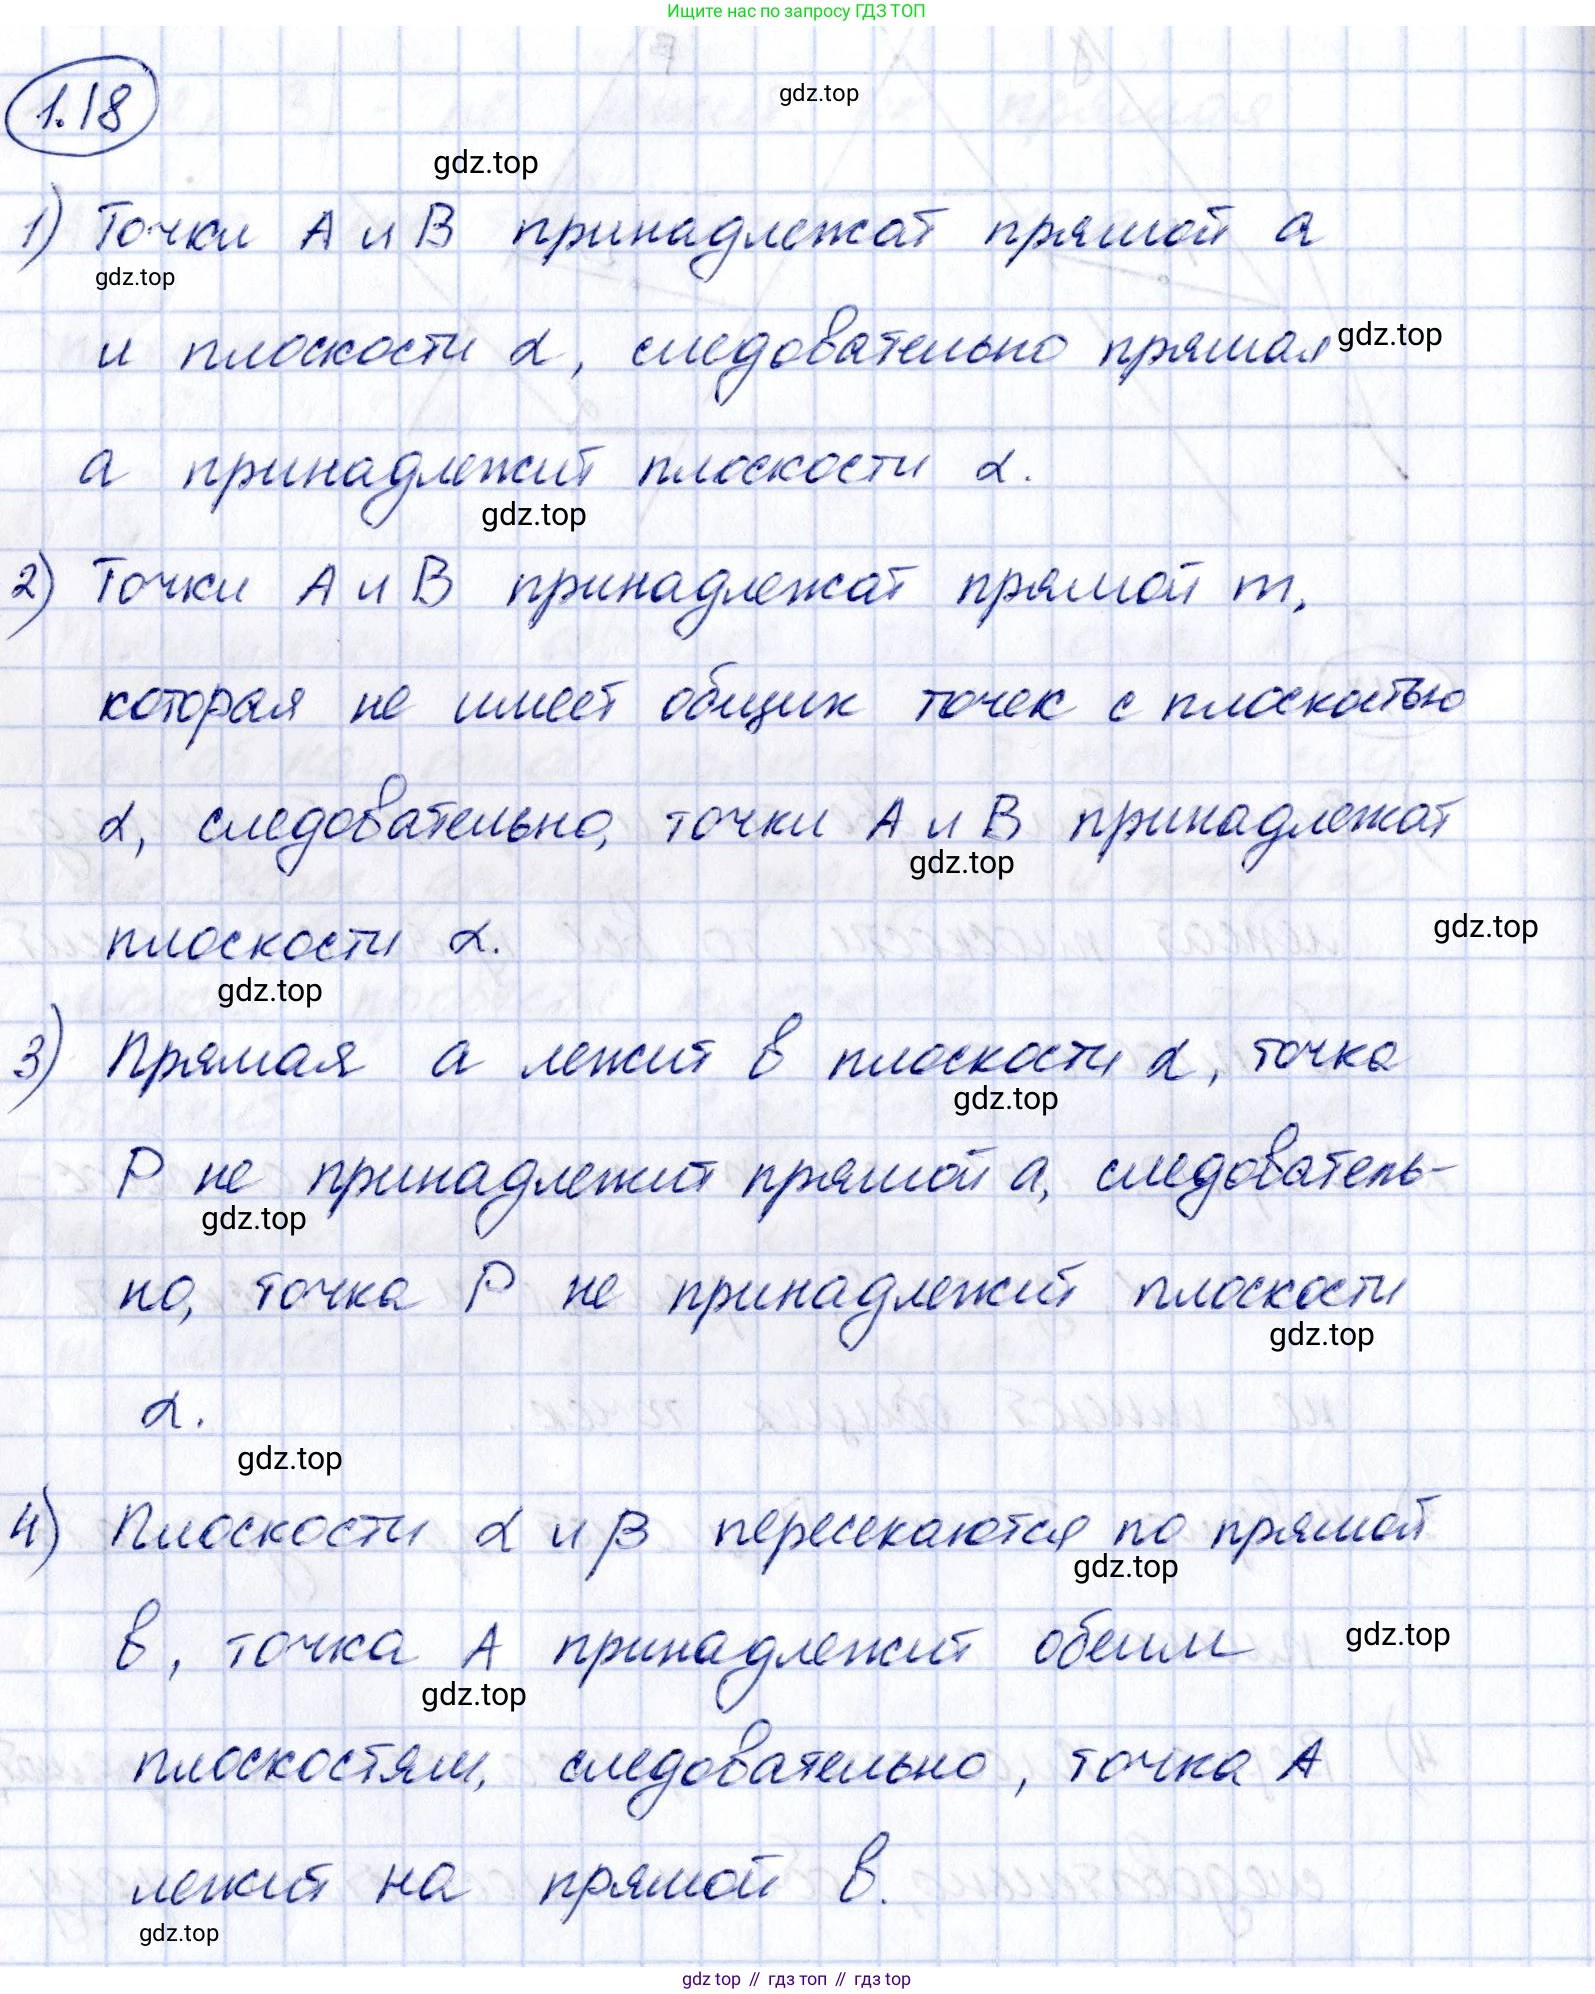 Ищите нас по запросу ГДЗ ТОП
1.18
gdz.top
gdz.top
1) Точки А и В принадлежат прямой a
gdz.top
и плоскости α, следовательно прямая
gdz.top
a принадлежит плоскости α.
gdz.top
2) Точки А и В принадлежат прямой m,
которая не имеет общих точек с плоскостью
α, следовательно, точки А и В принадлежат
gdz.top
плоскости α.
gdz.top
gdz.top
3) Прямая a лежит в плоскости α, точка
gdz.top
P не принадлежит прямой a, следователь-
gdz.top
но, точка P не принадлежит плоскости
gdz.top
α.
gdz.top
4) Плоскости α и β пересекаются по прямой
gdz.top
b, точка А принадлежит обеим
gdz.top
gdz.top
плоскостям, следовательно, точка А
лежит на прямой b.
gdz.top
gdz.top // гдз топ // гдз top